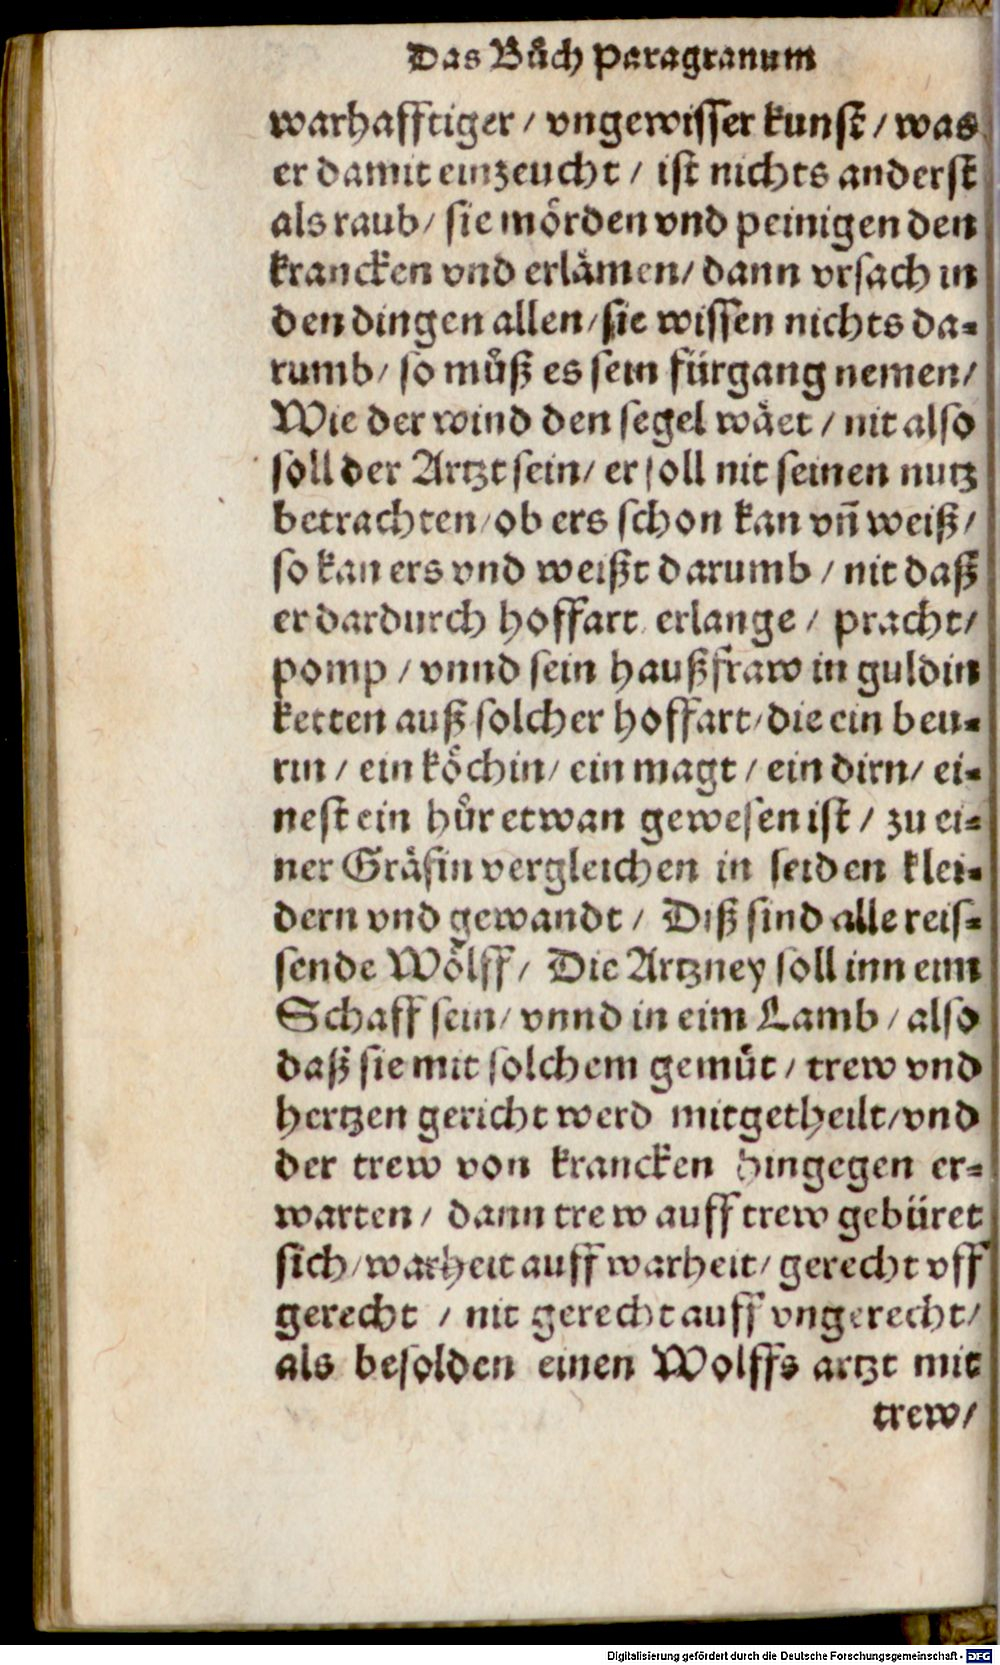 Das Bůch Paragranum
warhafftiger / vngewisser kunst / was
er damit einzeucht / ist nichts anderst
als raub / sie mörden vnd peinigen den
krancken vnd erlämen / dann vrsach in
den dingen allen / sie wissen nichts da-
rumb / so můß es sein fürgang nemen /
Wie der wind den segel wäet / nit also
soll der Artzt sein / er soll nit seinen nutz
betrachten / ob ers schon kan vñ weiß /
so kan ers vnd weißt darumb / nit daß
er dardurch hoffart erlange / pracht /
pomp / vnnd sein haußfraw in guldin
ketten auß solcher hoffart / die ein beu-
rin / ein köchin / ein magt / ein dirn / ei-
nest ein hůr etwan gewesen ist / zu ei-
ner Gräfin vergleichen in seiden klei-
dern vnd gewandt / Diß sind alle reis-
sende Wölff / Die Artzney soll inn eim
Schaff sein / vnnd in eim Lamb / also
daß sie mit solchem gemůt / trew vnd
hertzen gericht werd mitgetheilt / vnd
der trew von krancken hingegen er-
warten / dann trew auff trew gebüret
sich / warheit auff warheit / gerecht vff
gerecht / nit gerecht auff vngerecht /
als besolden einen Wolffs artzt mit
trew /
Digitalisierung gefördert durch die Deutsche Forschungsgemeinschaft - DFG